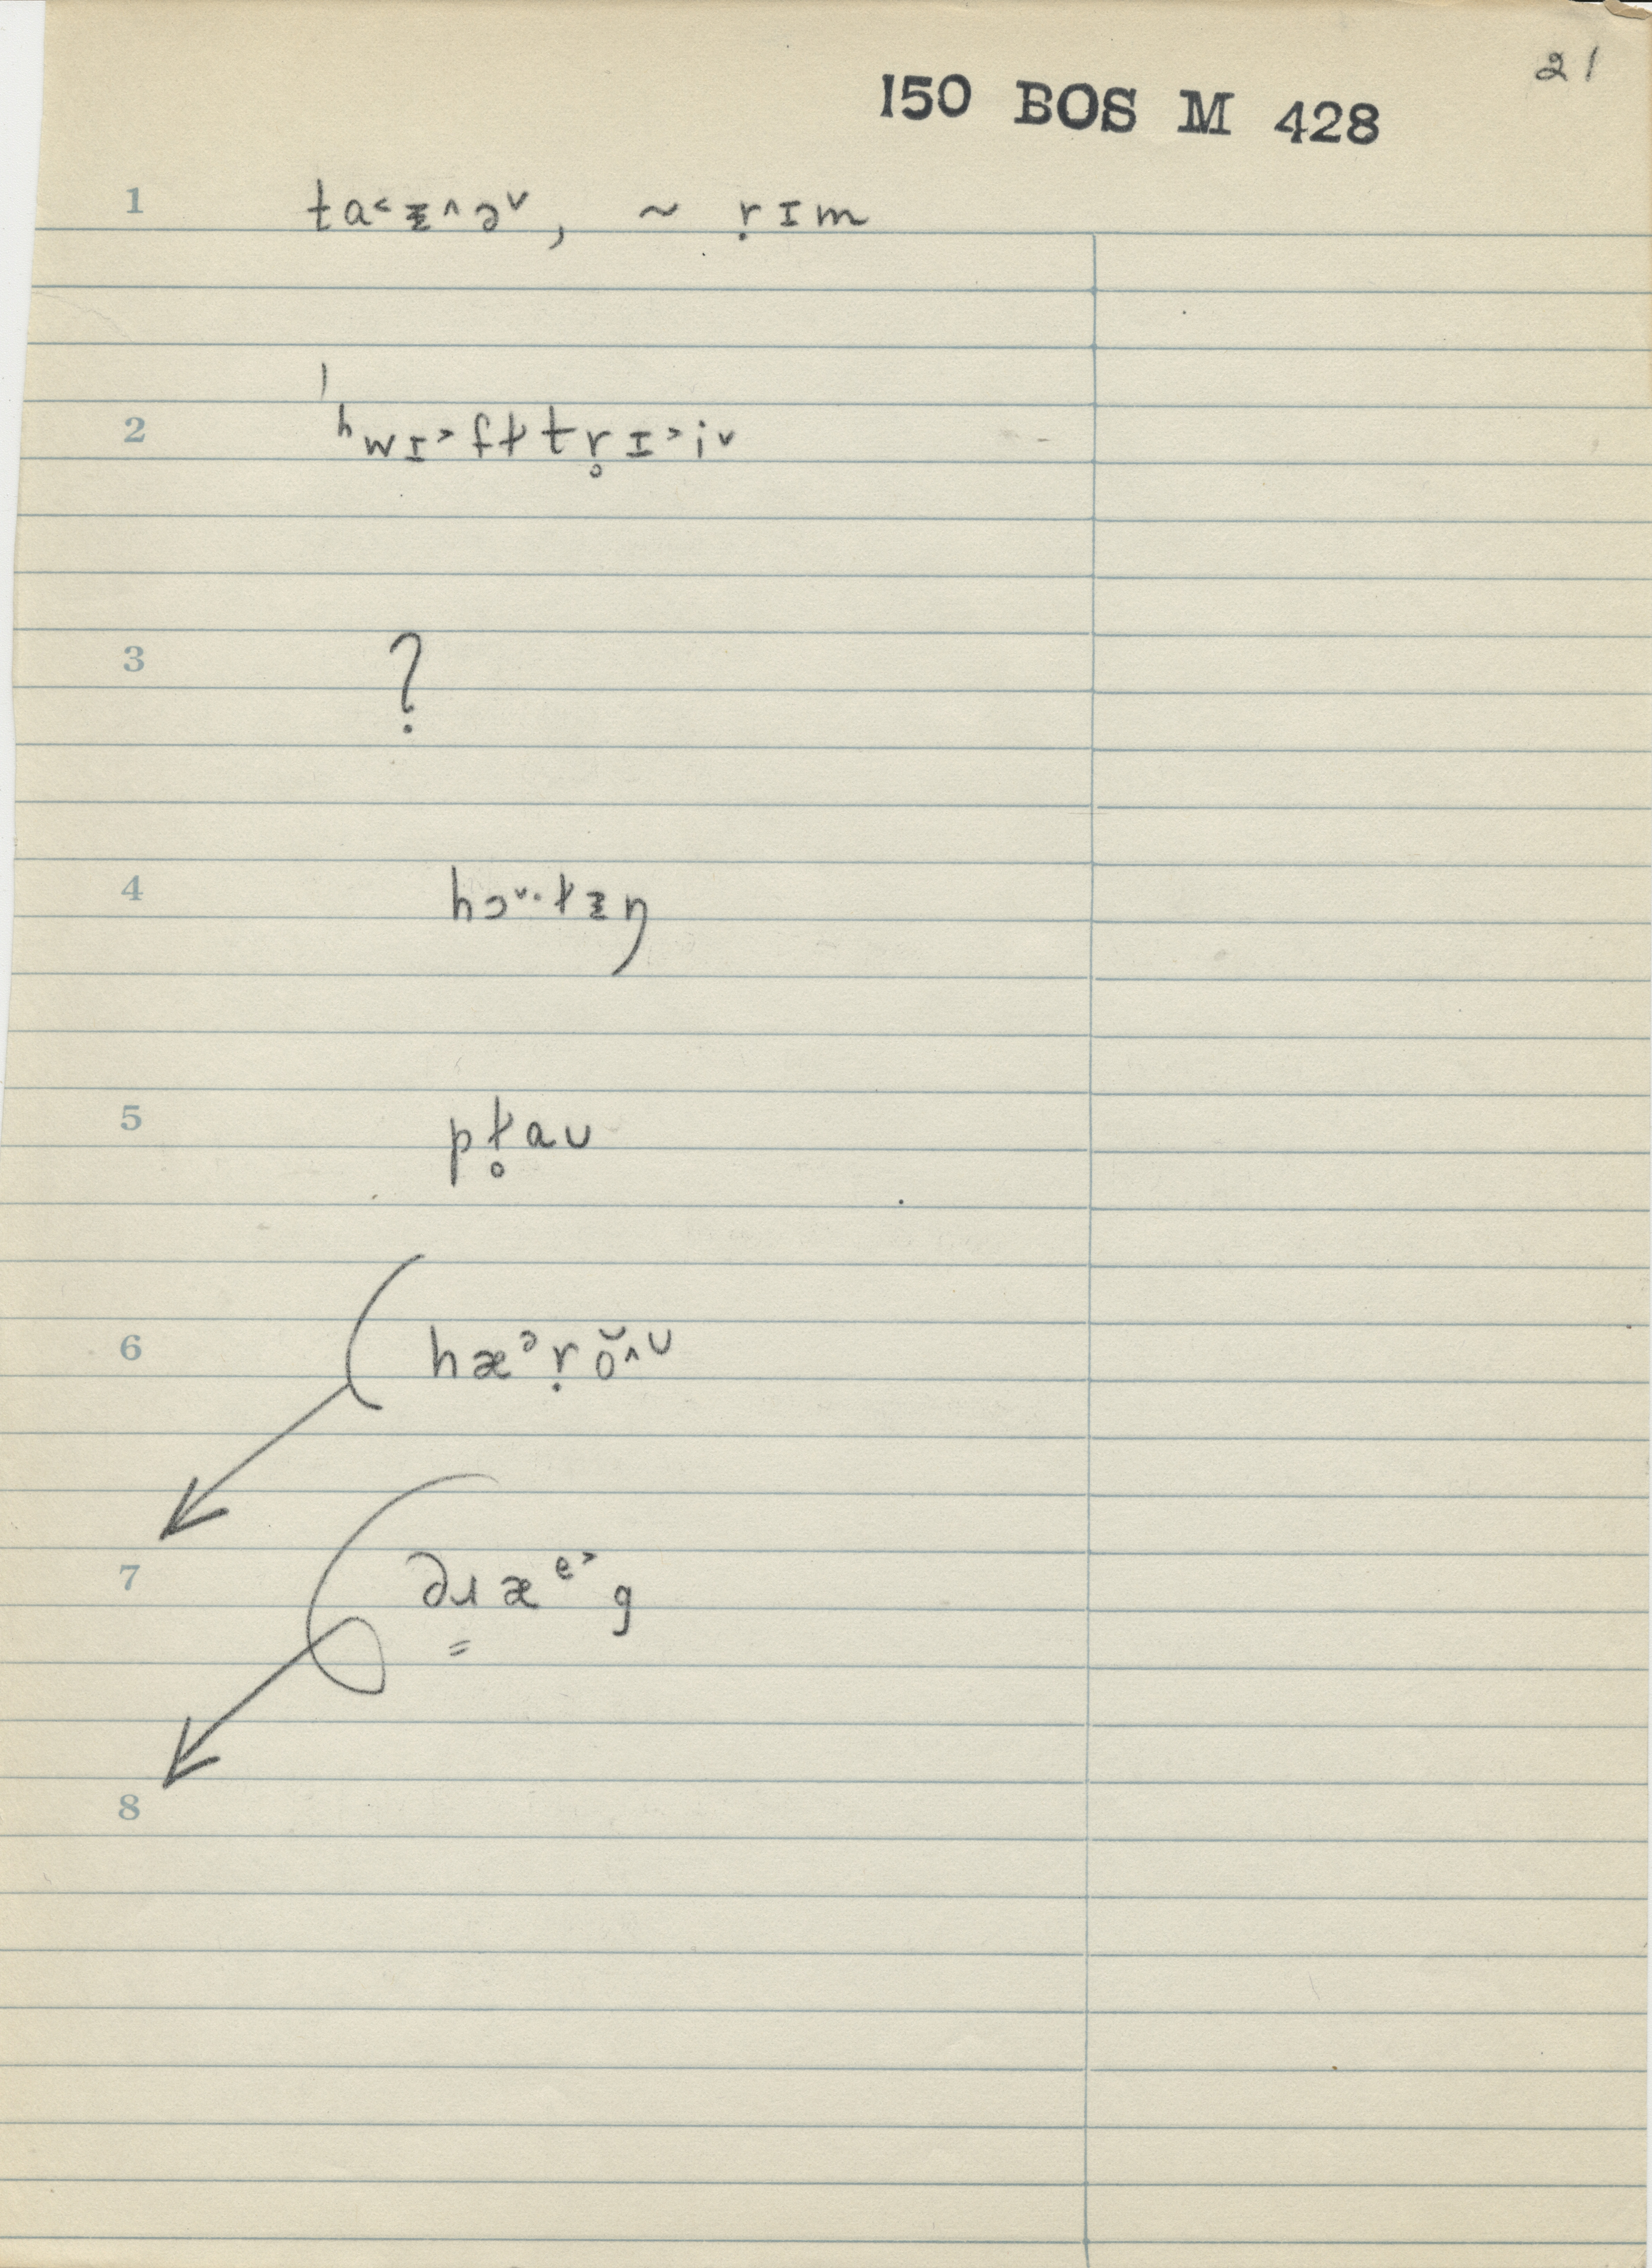 21
150 BOS M 428
1 ta˂ᵻ˄ə˅, ~ ṛɪm
2 ˈʰwɪ˃fɫtr̥ɪ˃i˅
3 ?
4 hɔ˅·ɫᵻŋ
5 pɫ̥aᴜ
6 hæᵊṛŏ˄ᶷ
7 dɹ̳æᵉ˃g
8